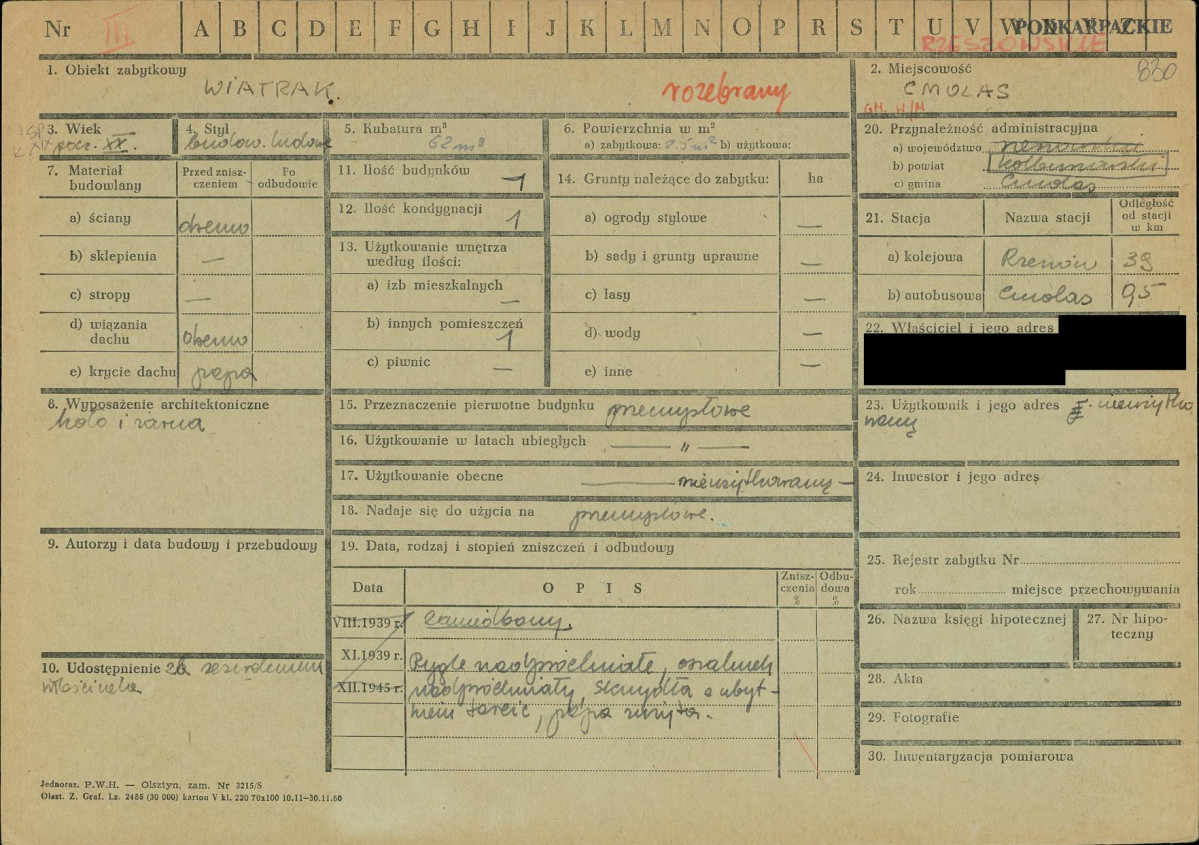 Nr III A B C D E F G H I J K L M N O P R S T U V W X Y Z PODKARPACKIE
RZESZOWSKIE
1. Obiekt zabytkowy
WIATRAK.
rozebrany
2. Miejscowość 830
CMOLAS
GM. W/M
3. Wiek
pocz. XX.
4. Styl
budow. ludowe
5. Kubatura m³
62 m³
6. Powierzchnia w m²
a) zabytkowa: b) użytkowa:
20. Przynależność administracyjna
a) województwo rzeszowskie
b) powiat kolbuszowski
c) gmina Cmolas
7. Materiał budowlany
Przed zniszczeniem
Po odbudowie
a) ściany drewno
b) sklepienia —
c) stropy —
d) wiązania dachu drewno
e) krycie dachu papa
11. Ilość budynków 1
12. Ilość kondygnacji 1
13. Użytkowanie wnętrza
według ilości:
a) izb mieszkalnych —
b) innych pomieszczeń 1
c) piwnic —
14. Grunty należące do zabytku: ha
a) ogrody stylowe —
b) sady i grunty uprawne —
c) lasy —
d) wody —
e) inne —
21. Stacja Nazwa stacji Odległość od stacji w km
a) kolejowa Rzeszów 39
b) autobusowa Cmolas 0,5
22. Właściciel i jego adres
8. Wyposażenie architektoniczne
koło i żarna
15. Przeznaczenie pierwotne budynku przemysłowe
16. Użytkowanie w latach ubiegłych — „ —
17. Użytkowanie obecne — nieużytkowany —
18. Nadaje się do użycia na przemysłowe.
23. Użytkownik i jego adres nieużytko
wany
24. Inwestor i jego adres
9. Autorzy i data budowy i przebudowy
19. Data, rodzaj i stopień zniszczeń i odbudowy
Data OPIS Zniszczenia % Odbudowa %
VIII.1939 r. zaniedbany.
XI.1939 r. Rygle nadpróchniałe, oszalunek
XII.1945 r. nadpróchniały, skrzydła z ubyt-
kiem tarcic, papa zużyta.
25. Rejestr zabytku Nr
rok miejsce przechowywania
26. Nazwa księgi hipotecznej
27. Nr hipoteczny
10. Udostępnienie za zezwoleniem
właściciela
28. Akta
29. Fotografie
30. Inwentaryzacja pomiarowa
Jednoraz. P.W.H. — Olsztyn, zam. Nr 3215/S
Olszt. Z. Graf. Lz. 2485 (30 000) karton V kl. 220 70x100 10.11—30.11.60